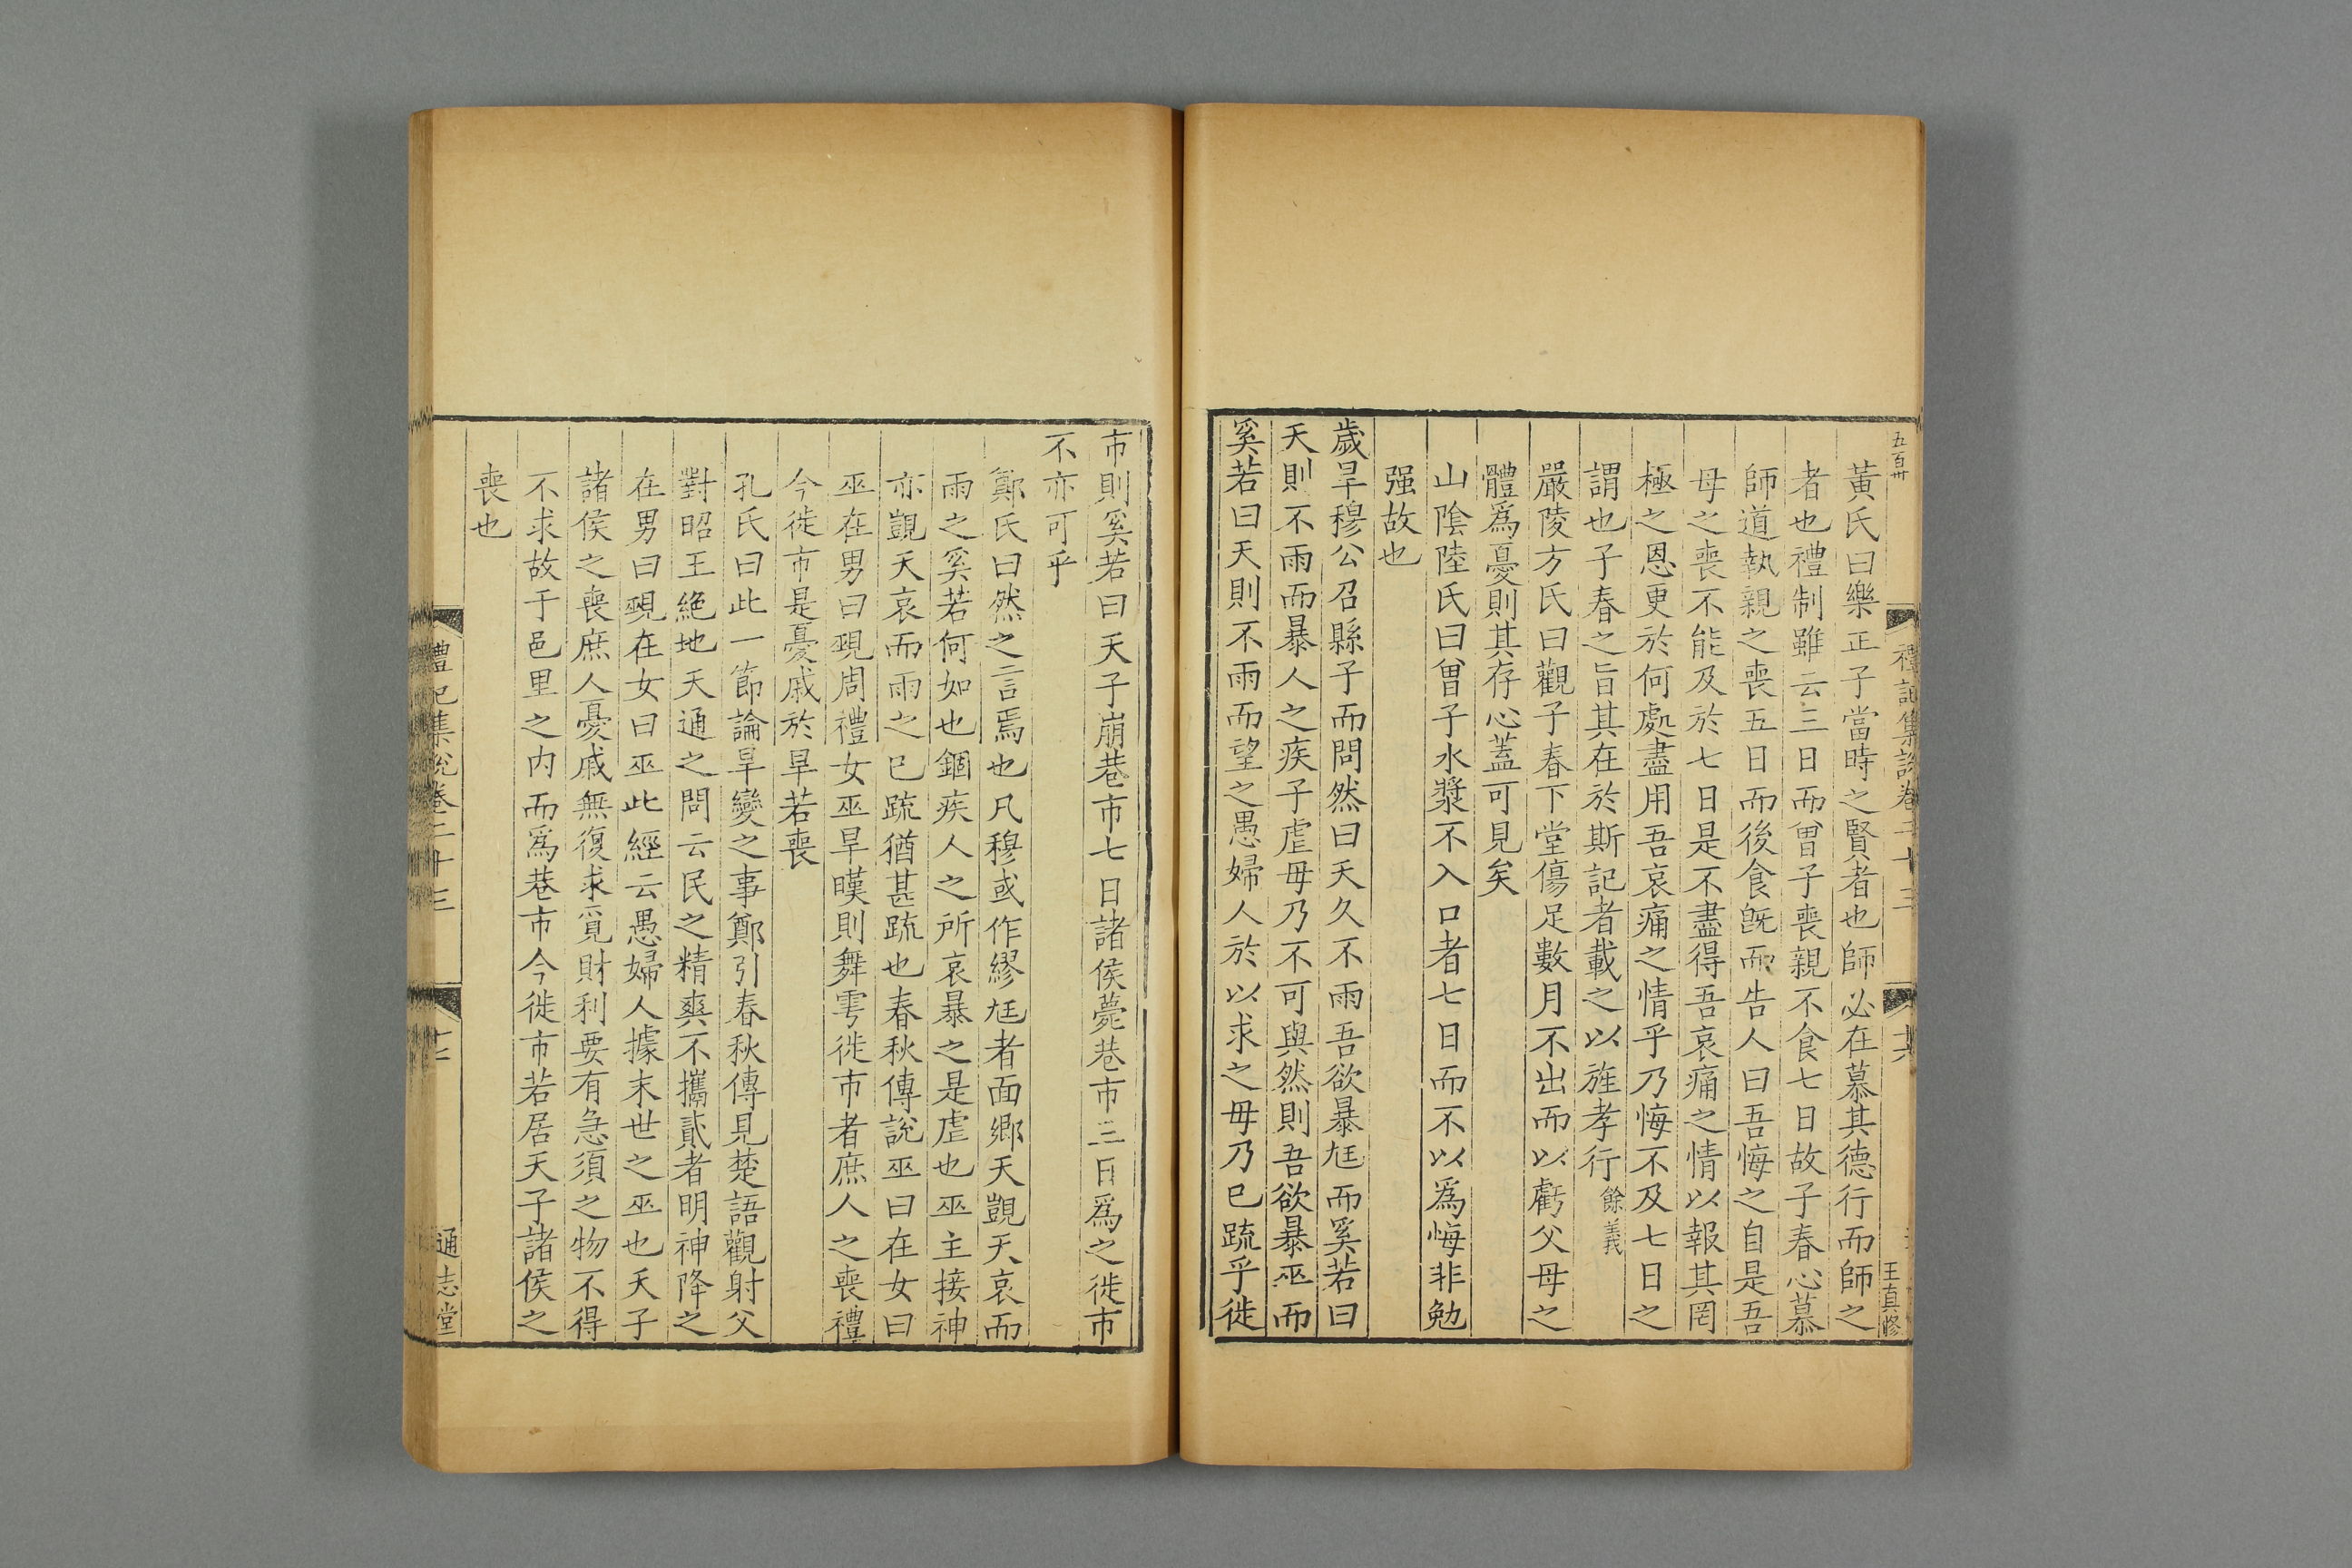 五百卅
禮記集說卷二十三
十六
王真修
黃氏曰樂正子當時之賢者也師必在慕其德行而師之
者也禮制雖云三日而曾子喪親不食七日故子春心慕
師道執親之喪五日而後食旣而告人曰吾悔之自是吾
母之喪不能及於七日是不盡得吾哀痛之情以報其罔
極之恩更於何處盡用吾哀痛之情乎乃悔不及七日之
謂也子春之旨其在於斯記者載之以旌孝行餘義
嚴陵方氏曰觀子春下堂傷足數月不出而以虧父母之
體爲憂則其存心蓋可見矣
山陰陸氏曰曾子水漿不入口者七日而不以爲悔非勉
强故也
歲旱穆公召縣子而問然曰天久不雨吾欲暴尫而奚若曰
天則不雨而暴人之疾子虐毋乃不可與然則吾欲暴巫而
奚若曰天則不雨而望之愚婦人於以求之毋乃已疏乎徙
市則奚若曰天子崩巷市七日諸侯薨巷市三日爲之徙市
不亦可乎
鄭氏曰然之言焉也凡穆或作繆尫者面鄉天覬天哀而
雨之奚若何如也錮疾人之所哀暴之是虐也巫主接神
亦覬天哀而雨之已疏猶甚疏也春秋傳說巫曰在女曰
巫在男曰覡周禮女巫旱暵則舞雩徙市者庶人之喪禮
今徙市是憂戚於旱若喪
孔氏曰此一節論旱變之事鄭引春秋傳見楚語觀射父
對昭王絶地天通之問云民之精爽不攜貳者明神降之
在男曰覡在女曰巫此經云愚婦人據末世之巫也天子
諸侯之喪庶人憂戚無復求覓財利要有急須之物不得
不求故于邑里之内而爲巷市今徙市若居天子諸侯之
喪也
禮記集說卷二十三
十七
通志堂